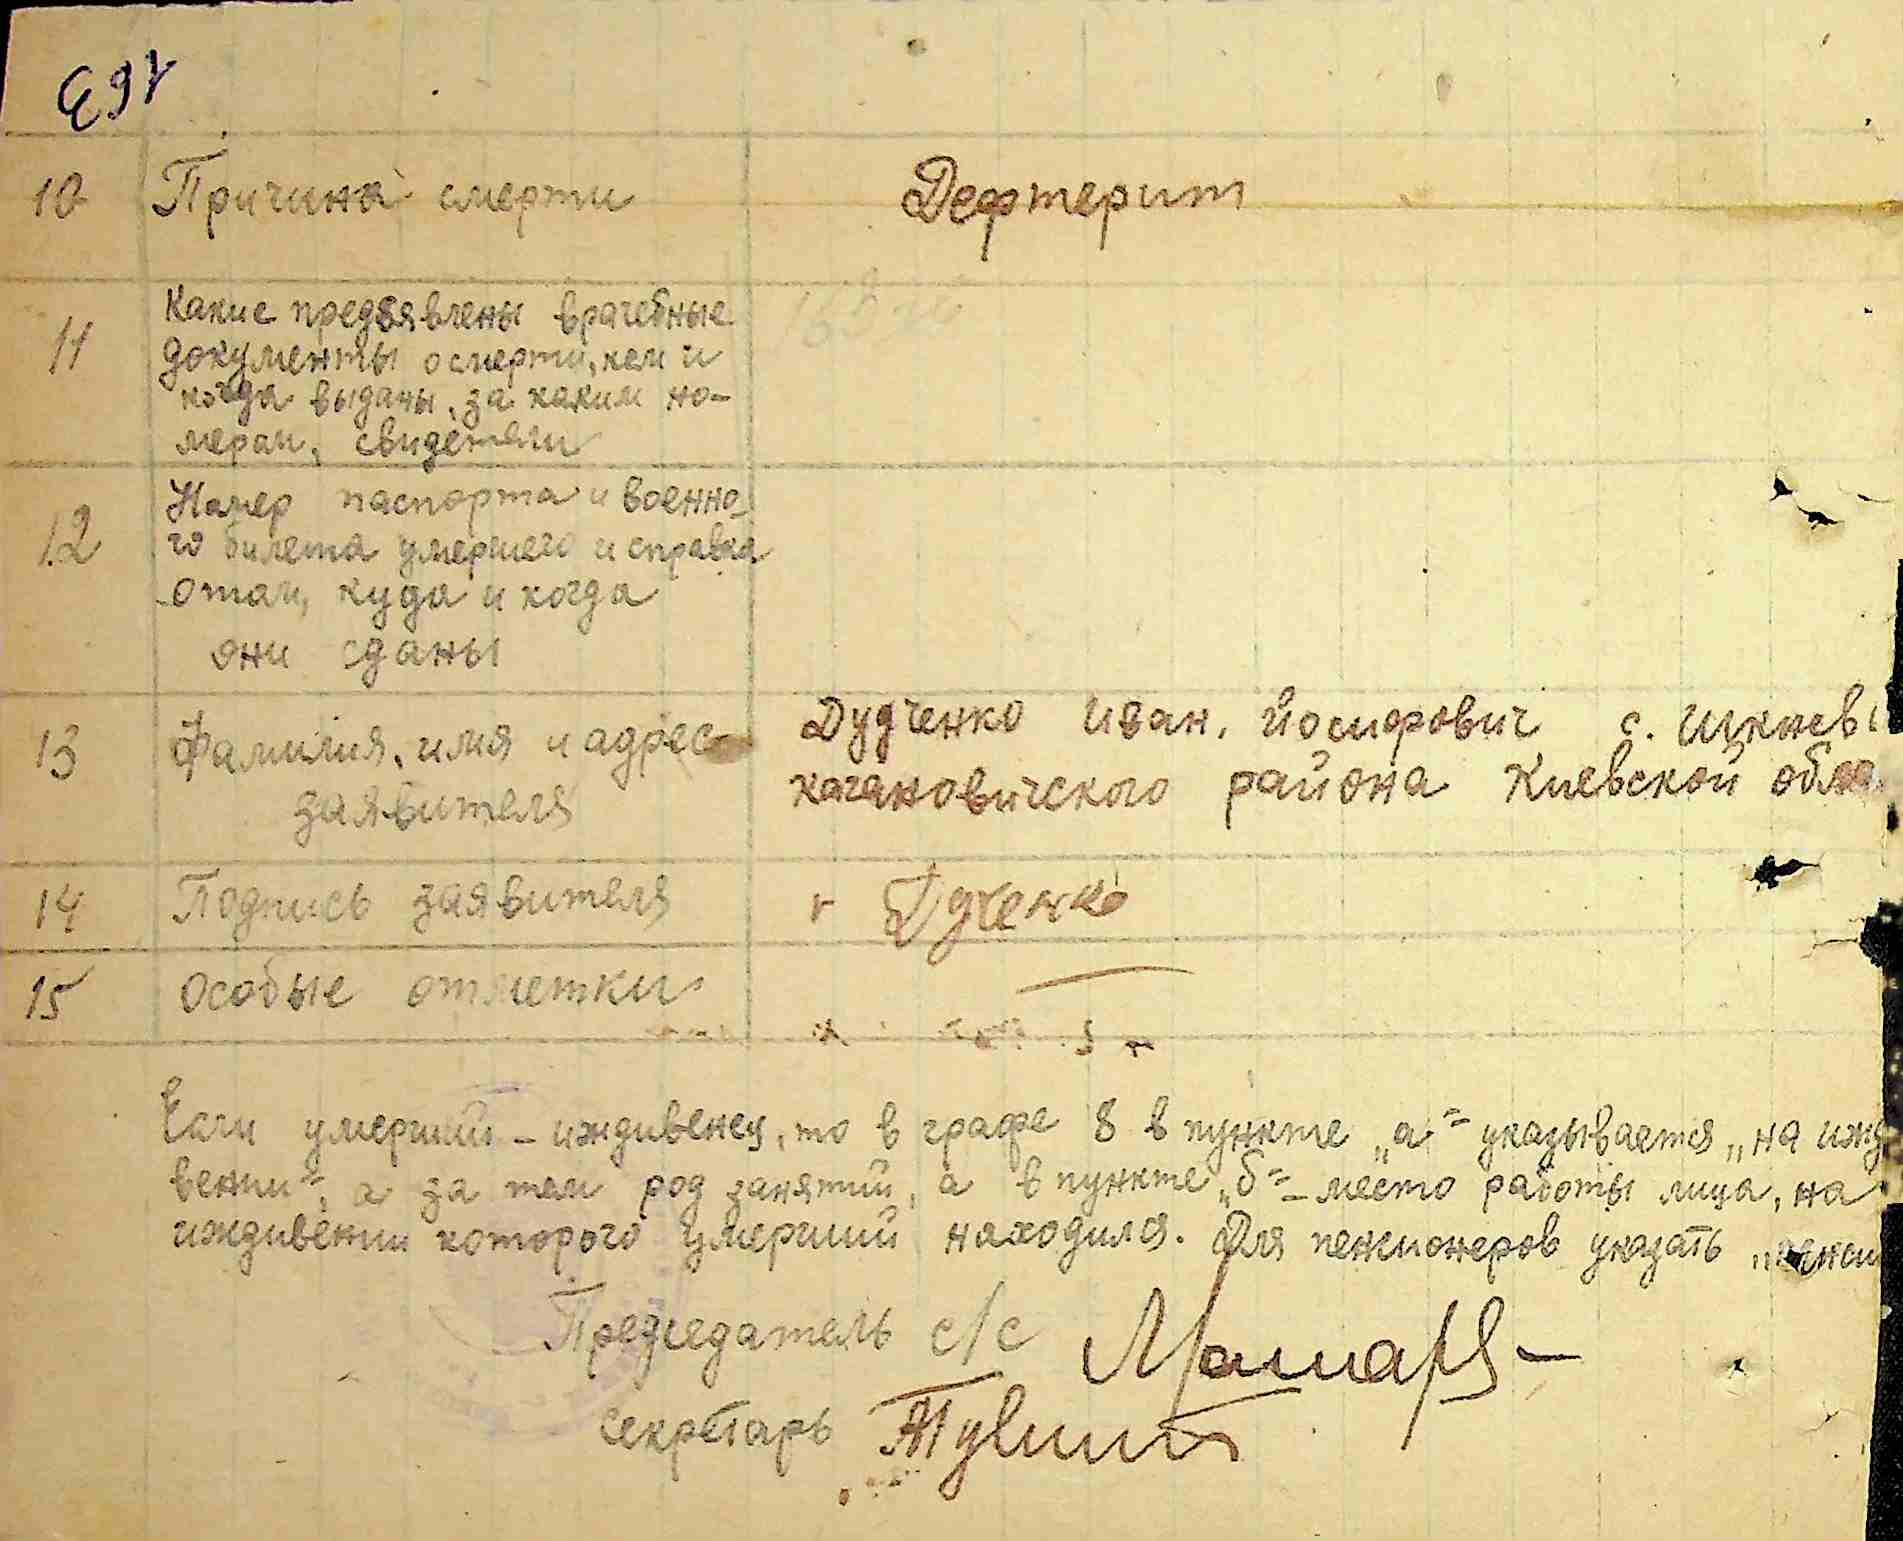 163
10 Причина смерти Дефтерит
Какие предъявлены врачебные
11 документы о смерти, кем и
когда выданы, за каким но-
мером, свидетели
Номер паспорта и военно-
12 го билета умершего и справка
о том, куда и когда
они сданы
13 Фамилия, имя и адрес Дудченко Иван. Йосифович с.
заявителя кагановичского района Киевской обла
14 Подпись заявителя Дученко
15 Особые отметки —
Если умерший – иждивенец, то в графе 8 в пункте „а“ указывается „на ижд
вении“, а за тем род занятий, а в пункте „б“ – место работы лица, на
иждивении которого умерший находился. Для пенсионеров указать „пенси
Председатель с/с
Секретарь